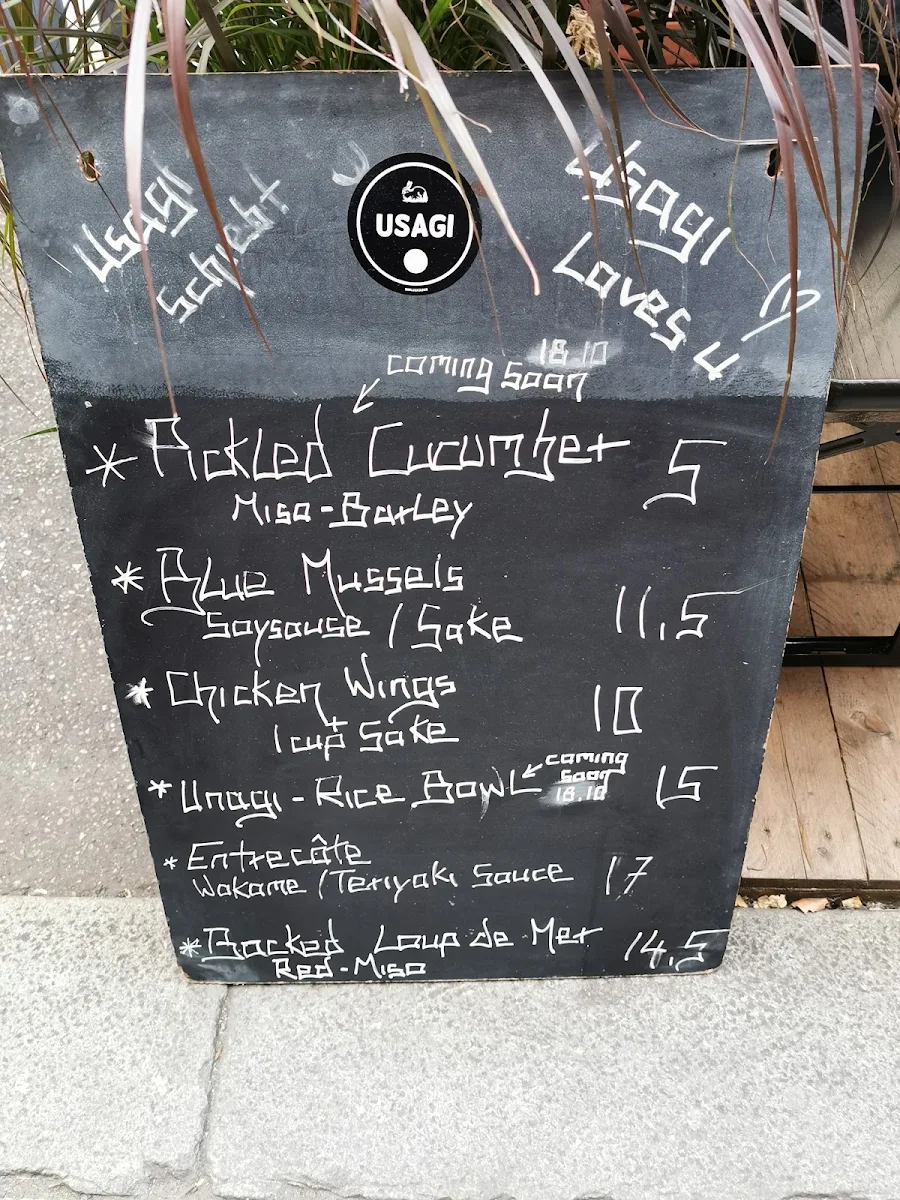 Usagi
Schiebt
USAGI
Usagi
Loves 4
coming soon 18.10
* Pickled Cucumber 5
Miso-Barley
* Blue Mussels
Soysouse / Sake 11,5
* Chicken Wings 10
+
1 cup Sake
* Unagi-Rice Bowl 15
coming
soon
18.10
* Entrecâte
Wakame / Teriyaki Sauce 17
* Backed Loup de Mer 14,5
Red-Miso